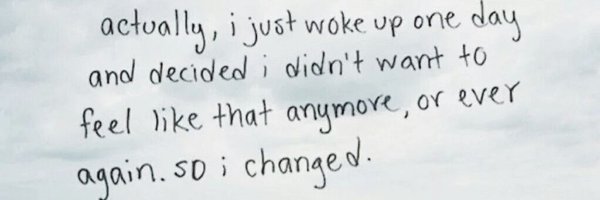 actually, i just woke up one day
and decided i didn't want to
feel like that anymore, or ever
again. so i changed.